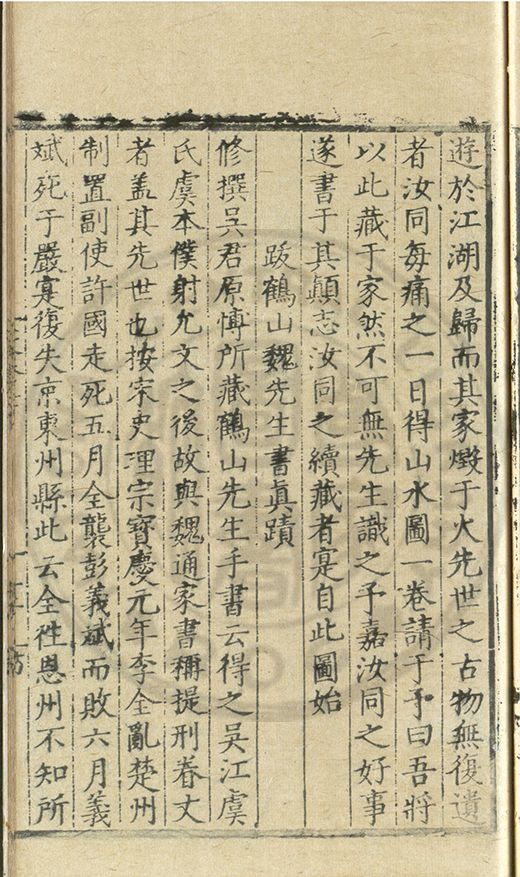 遊於江湖及歸而其家燬于火先世之古物無復遺
者汝同每痛之一日得山水圖一卷請于予曰吾將
以此藏于家然不可無先生識之予嘉汝同之好事
遂書于其顛志汝同之續藏者寔自此圖始
跋鶴山魏先生書眞蹟
修撰吳君原博所藏鶴山先生手書云得之吳江虞
氏虞本僕射允文之後故與魏通家書稱提刑眷丈
者盖其先世也按宋史理宗寶慶元年李全亂楚州
制置副使許國走死五月全襲彭義斌而敗六月義
斌死于嚴寔復失京東州縣此云全徃恩州不知所